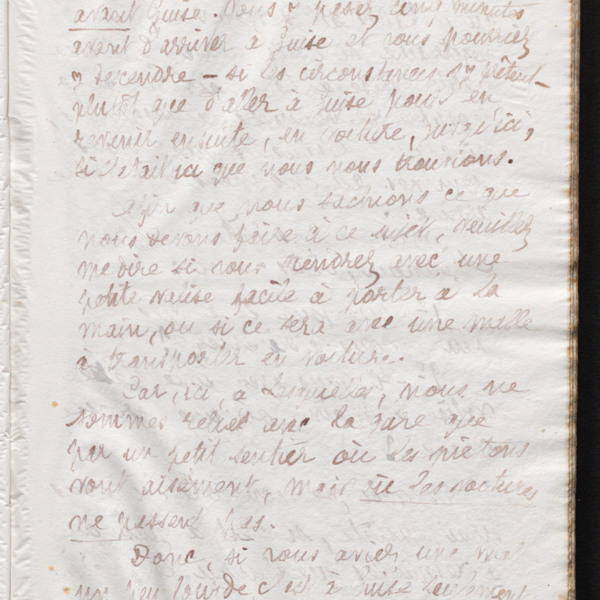 avant Guise. Vous y passez cinq minutes
avant d'arriver à Guise et vous pourriez
y descendre — si les circonstances s'y prêtent —
plutôt que d'aller à Guise pour en
revenir ensuite, en voiture, jusqu'ici,
si c'était ici que nous nous trouvions.
Afin que nous sachions ce que
nous devons faire à ce sujet, veuillez
me dire si vous viendrez avec une
petite valise facile à porter à la
main, ou si ce sera avec une malle
à transporter en voiture.
Car, ici, à Lesquielles, nous ne
sommes reliés avec la gare que
par un petit sentier où les piétons
vont aisément, mais où les voitures
ne passent pas.
Donc, si vous aviez une malle
un peu lourde c'est à Guise seulement